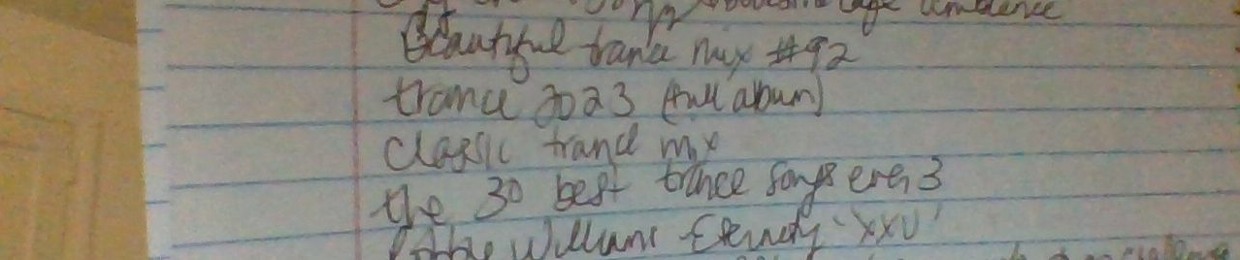 ambience
Beautiful trance mix #92
trance 2023 (full album)
classic trance mix
the 30 best trance songs ever 3
Robbie Williams Eternity 'XXV'